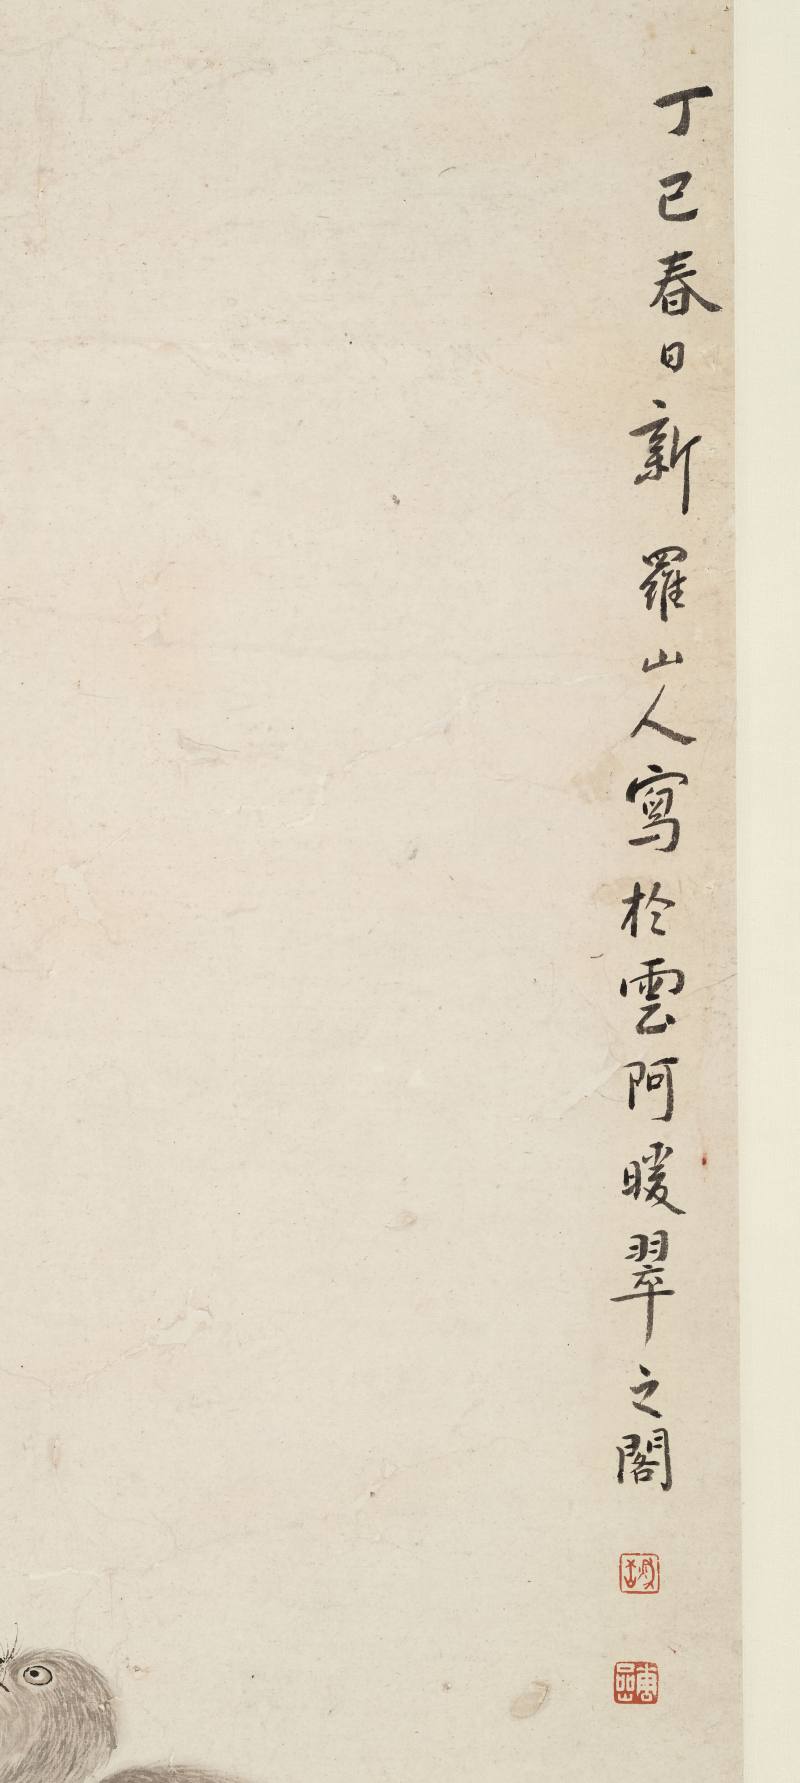 丁巳春日新羅山人寫於雲阿暖翠之閣